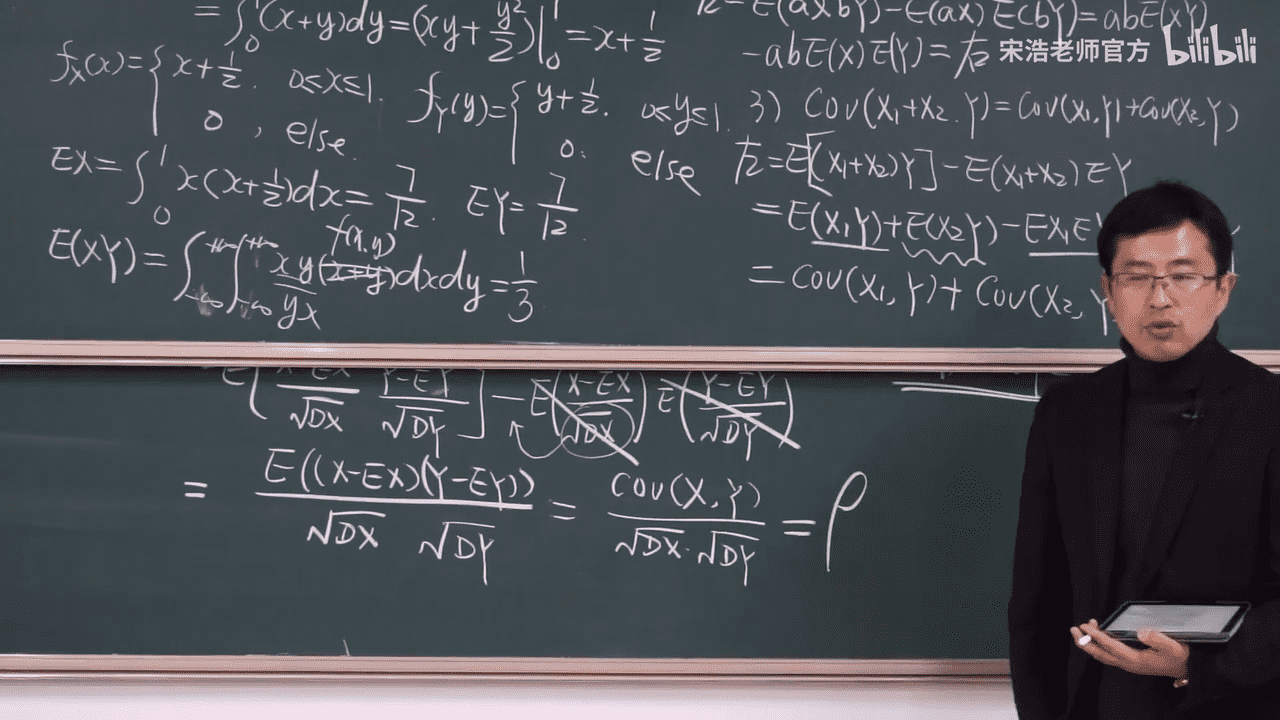 = ∫₀¹ (x+y)dy = (xy + y²/2)|₀¹ = x + 1/2
f_X(x) = { x + 1/2, 0≤x≤1
0, else.
f_Y(y) = { y + 1/2, 0≤y≤1.
0. else
EX = ∫₀¹ x(x+1/2)dx = 7/12. EY = 7/12.
f(x,y)
E(XY) = ∫_{-∞}^{+∞} ∫_{-∞}^{+∞} xy (x+y) dxdy = 1/3
yx
左 = E(aXbY) - E(aX)E(bY) = abE(XY)
-abE(X)E(Y) = 右
宋浩老师官方 bilibili
3) Cov(X₁+X₂, Y) = Cov(X₁,Y) + Cov(X₂,Y)
左 = E[(X₁+X₂)Y] - E(X₁+X₂)EY
= E(X₁Y) + E(X₂Y) - EX₁EY
= Cov(X₁,Y) + Cov(X₂,Y
E[ (X-EX)/√DX (Y-EY)/√DY ] - E((X-EX)/√DX) E((Y-EY)/√DY)
= E((X-EX)(Y-EY)) / √DX √DY = Cov(X,Y) / √DX·√DY = ρ